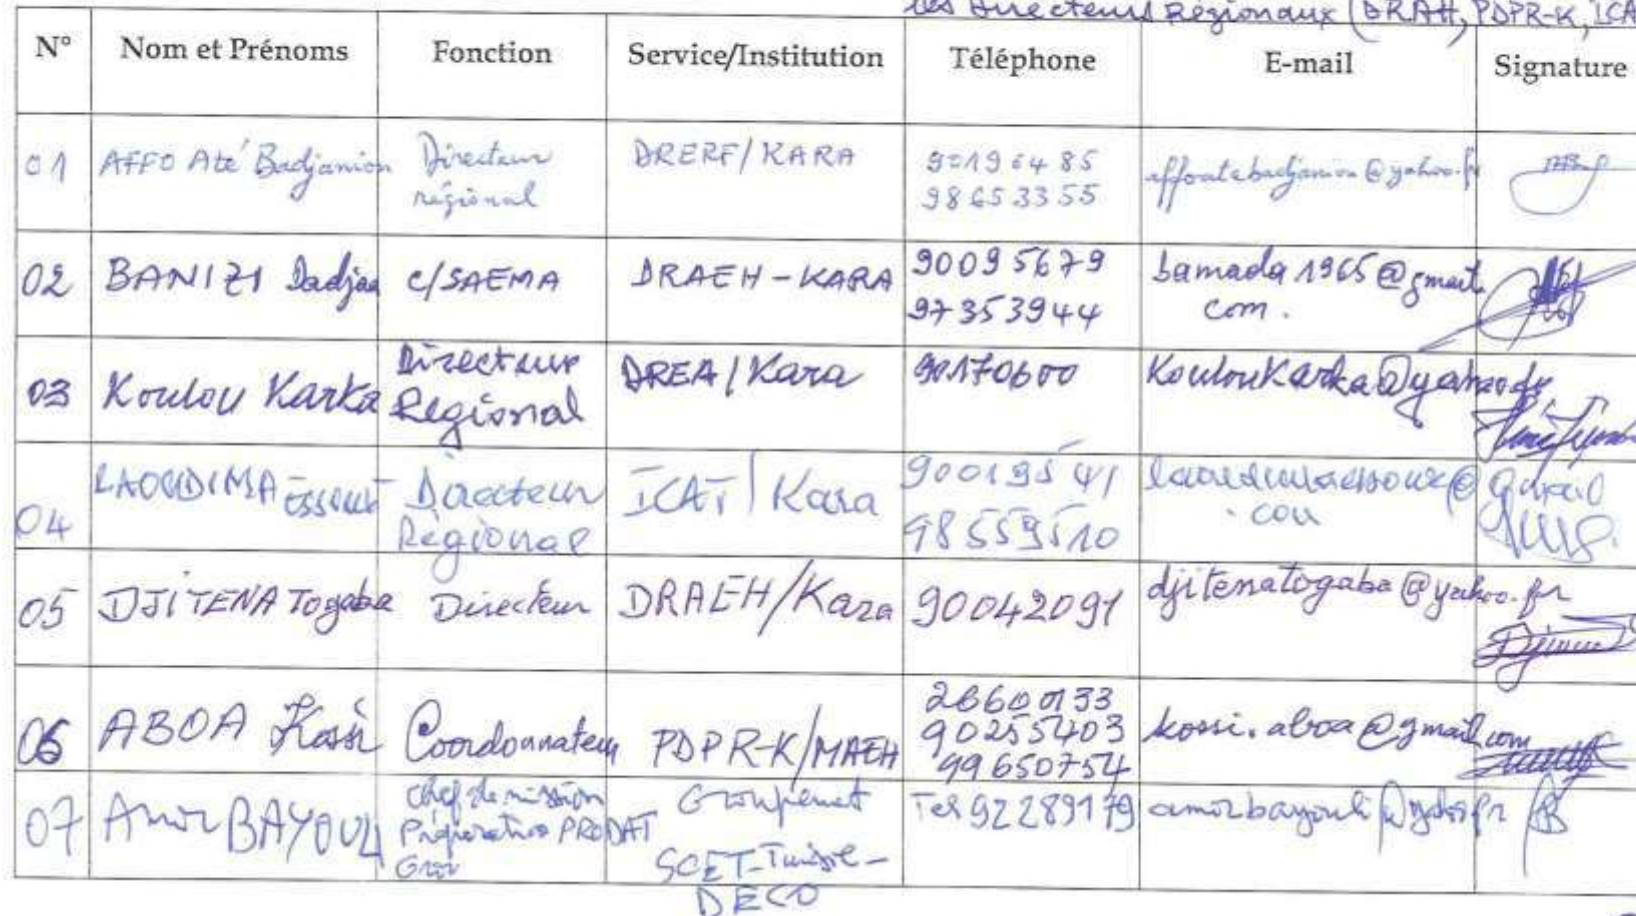 les Directeurs Régionaux (DRAH, PDPR-K, ICA
N° Nom et Prénoms Fonction Service/Institution Téléphone E-mail Signature
01 AFFO Até Badjanion Directeur régional DRERF/KARA 90196485 98653355 affoatebadjanion@yahoo.fr
02 BANIZI Dadjaa C/SAEMA DRAEH-KARA 90095679 97353944 bamada1965@gmail.com.
03 Koulou Karka Directeur Régional DREA/Kara 90170600 Kouloukarka@yahoo.fr
04 LAOUDIMA Directeur Régional ICAT/Kara 90019541 98559510 @gmail.com
05 DJITENA Togaba Directeur DRAEH/Kara 90042091 djitenatogaba@yahoo.fr
06 ABOA Kossi Coordonnateur PDPR-K/MAEH 26600133 90255403 99650754 kossi.aboa@gmail.com
07 Amor BAYOULI Chef de mission Préparation PRODAT Groupement SCET-Tunisie-DECO Tel 92289179 amorbayouli@yahoo.fr